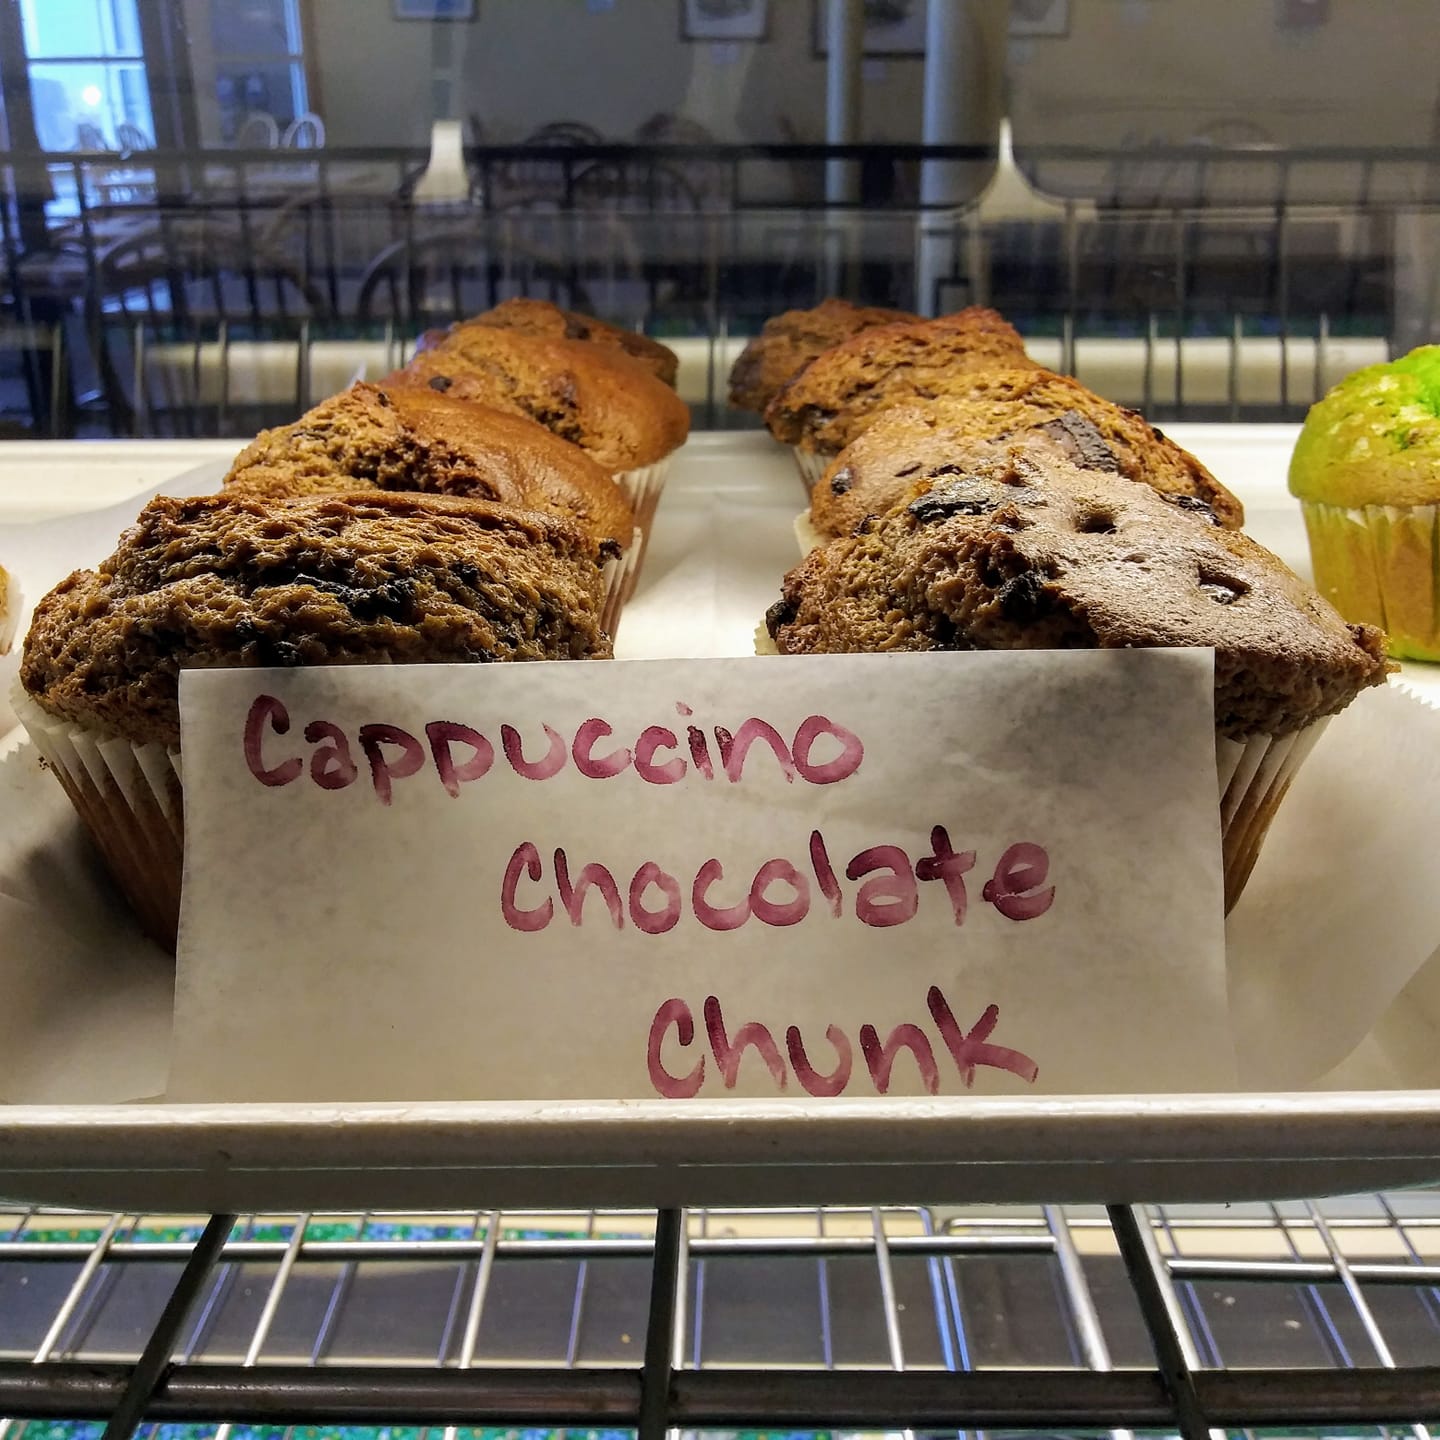 Cappuccino
Chocolate
Chunk